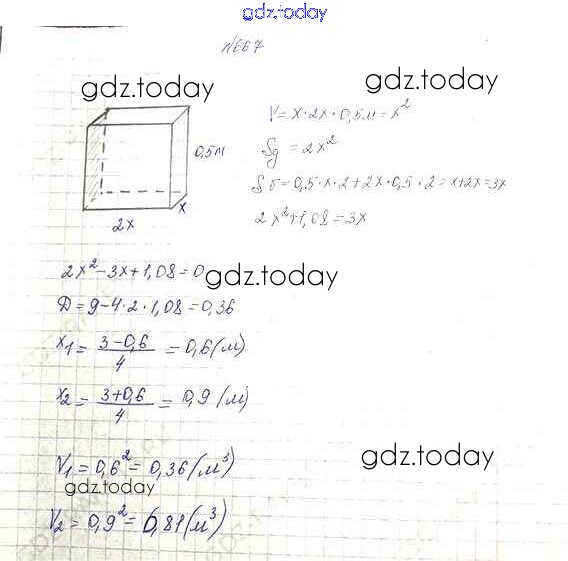 gdz.today
№667
gdz.today
gdz.today
0,5м
2x
x
V = x·2x·0,5м = x²
Sд = 2x²
Sб = 0,5·x·2+2x·0,5·2 = x+2x = 3x
2x²+1,08 = 3x
2x²-3x+1,08=0
gdz.today
D = 9-4·2·1,08 = 0,36
x₁ = (3-0,6)/4 = 0,6 (м)
x₂ = (3+0,6)/4 = 0,9 (м)
gdz.today
V₁ = 0,6² = 0,36 (м³)
gdz.today
V₂ = 0,9² = 0,81 (м³)